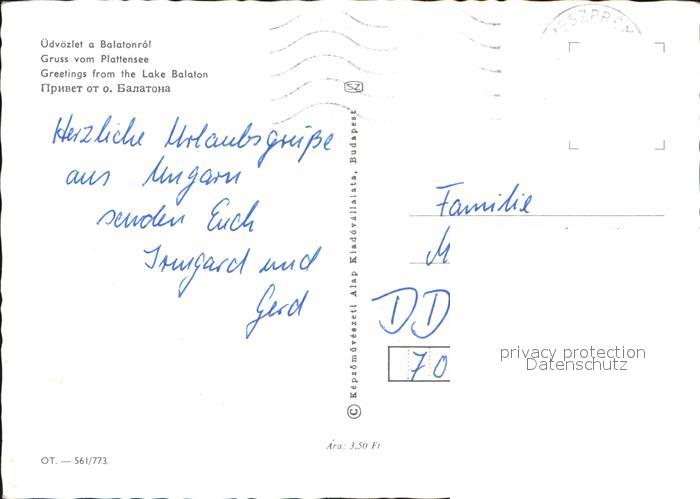 Üdvözlet a Balatonról
Gruss vom Plattensee
Greetings from the Lake Balaton
Привет от о. Балатона
VESZPRÉM
SZ
Herzliche Urlaubsgrüße
aus Ungarn
senden Euch
Irmgard und
Gerd
© Képzőművészeti Alap Kiadóvállalata, Budapest
Familie
M
DD
70
privacy protection
Datenschutz
Ára: 3,50 Ft
OT. — 561/773.